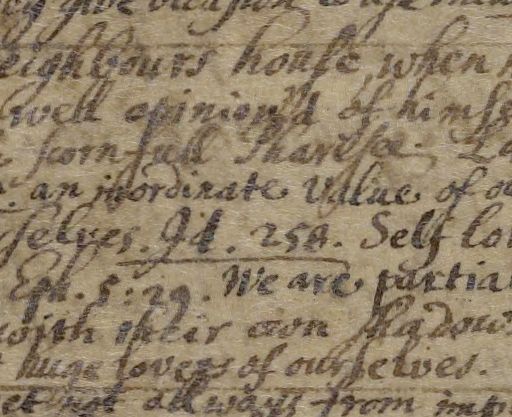 give occasion to
eighbours house, when
well opinion'd of himse
scornfull Pharisee.
an inordinate value of o
selves. Id. 254. Self lo
Eph. 5:29. We are partia
with their own shadow
huge lovers of ourselves.
not allways from